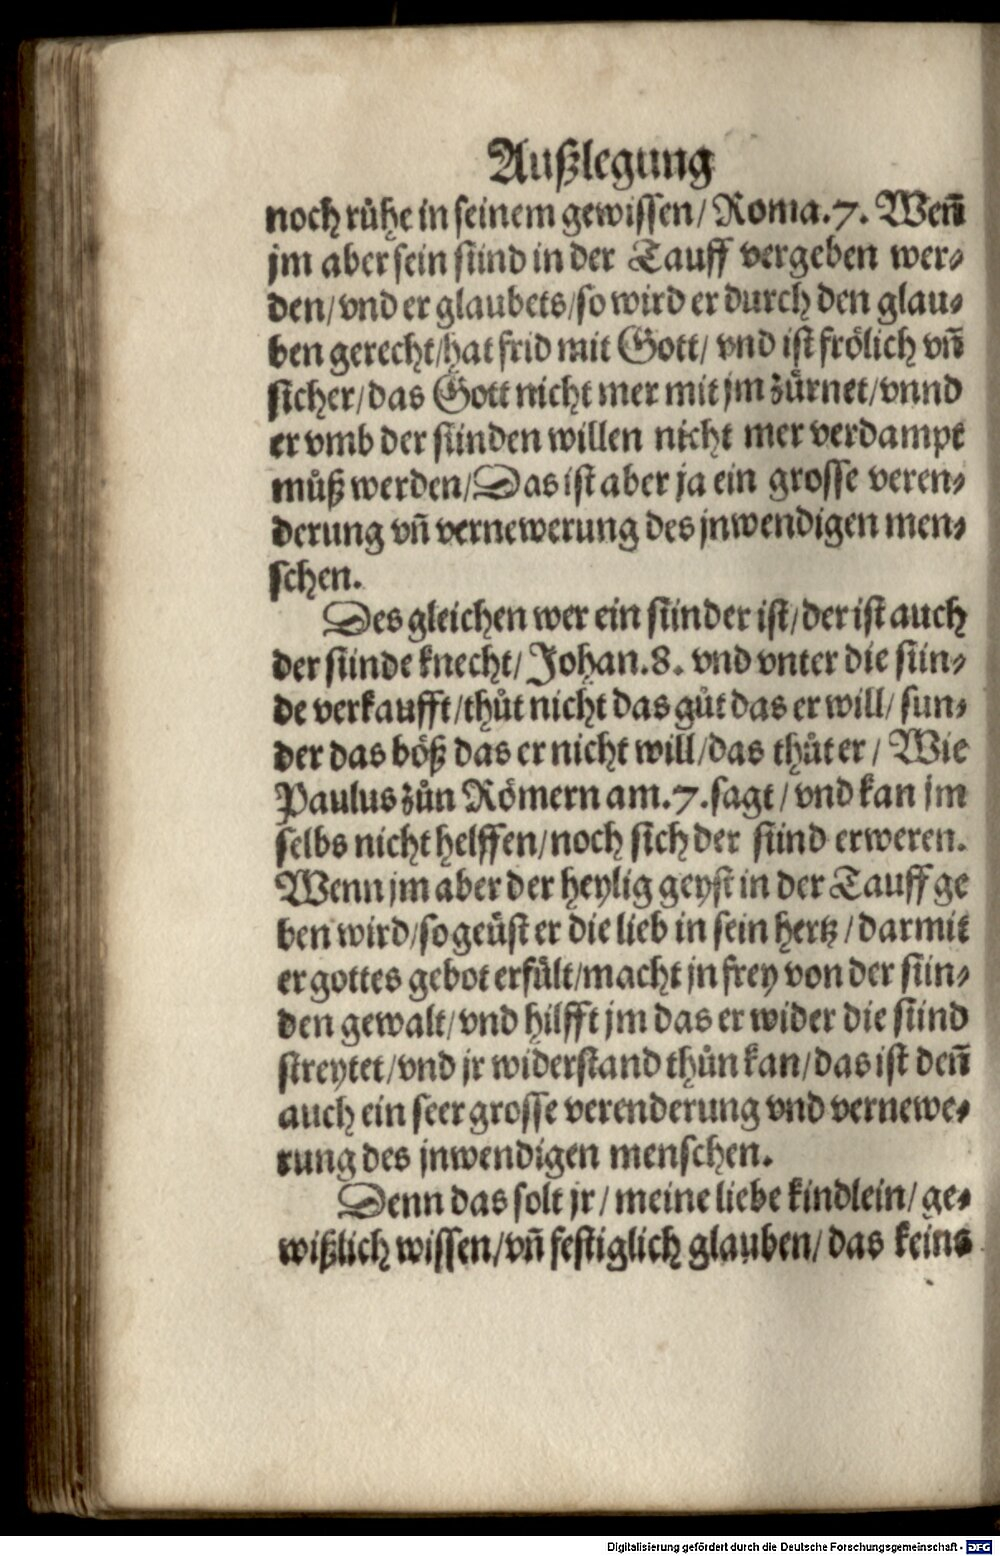 Außlegung
noch růhe in seinem gewissen/ Roma.7. Weñ
jm aber sein sünd in der Tauff vergeben wer⸗
den/ vnd er glaubets/ so wird er durch den glau⸗
ben gerecht/ hat frid mit Gott/ vnd ist frölich vñ
sicher/ das Gott nicht mer mit jm zürnet/ vnnd
er vmb der sünden willen nicht mer verdampt
můß werden/ Das ist aber ja ein grosse veren⸗
derung vñ vernewerung des jnwendigen men⸗
schen.
Des gleichen wer ein sünder ist/ der ist auch
der sünde knecht/ Johan.8. vnd vnter die sün⸗
de verkaufft/ thůt nicht das gůt das er will/ sun⸗
der das böß das er nicht will/ das thůt er/ Wie
Paulus zůn Römern am.7. sagt/ vnd kan jm
selbs nicht helffen/ noch sich der sünd erweren.
Wenn jm aber der heylig geyst in der Tauff ge
ben wird/ so geüst er die lieb in sein hertz/ darmit
er gottes gebot erfült/ macht jn frey von der sün⸗
den gewalt/ vnd hilfft jm das er wider die sünd
streytet/ vnd jr widerstand thůn kan/ das ist deñ
auch ein seer grosse verenderung vnd vernewe⸗
rung des jnwendigen menschen.
Denn das solt jr/ meine liebe kindlein/ ge⸗
wißlich wissen/ vñ festiglich glauben/ das keins
Digitalisierung gefördert durch die Deutsche Forschungsgemeinschaft - DFG